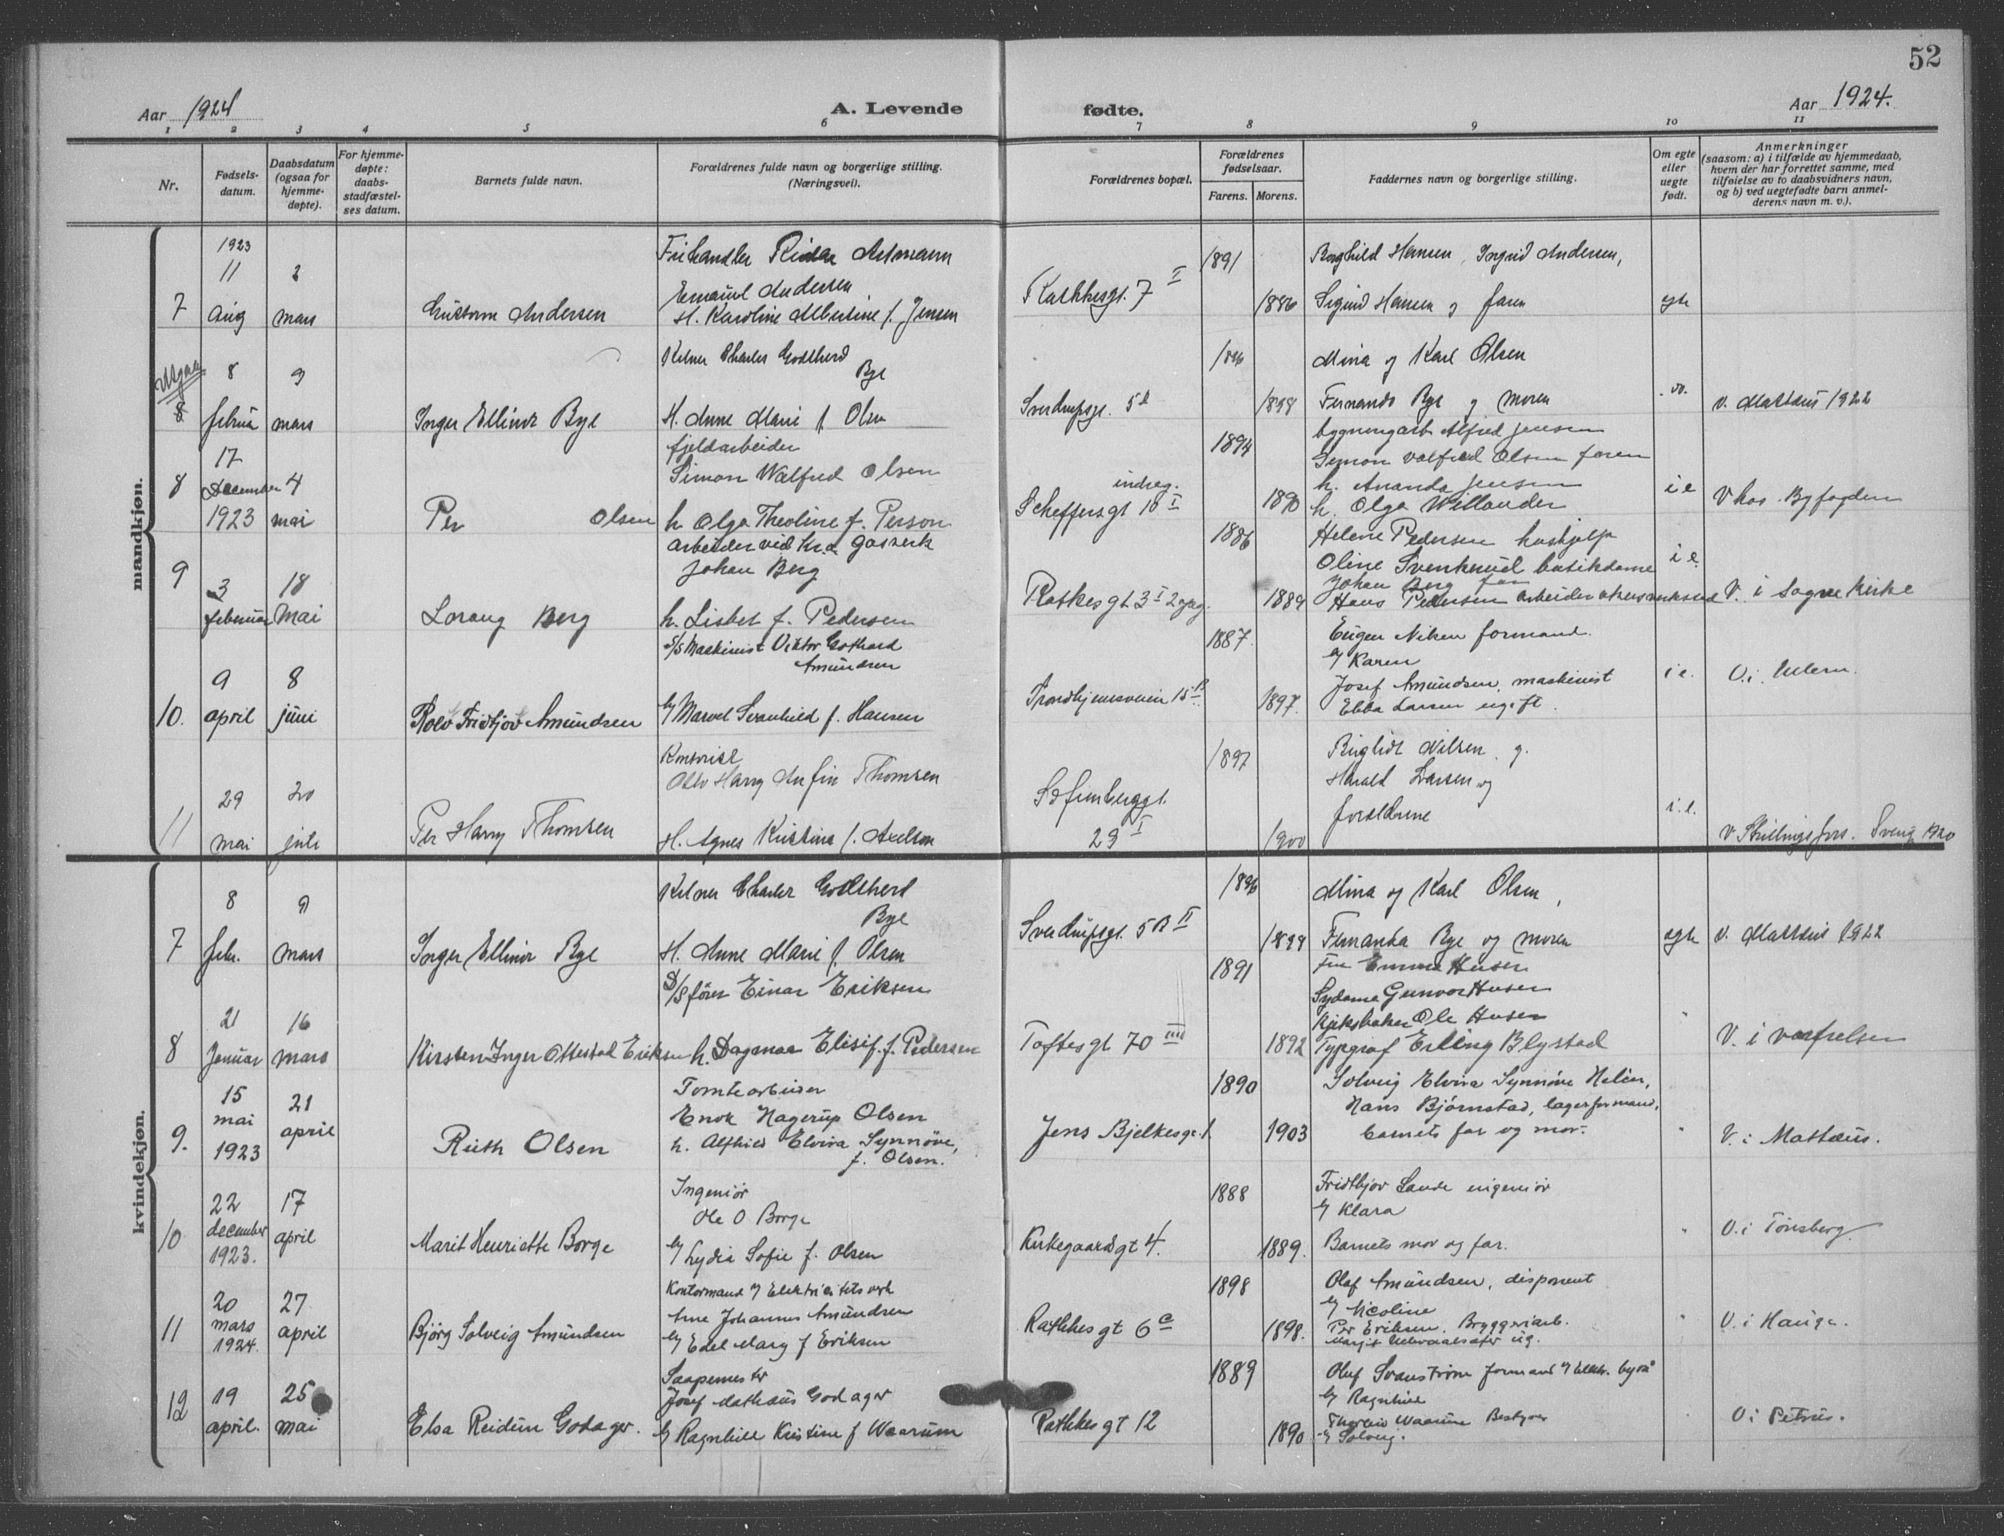 52
Aar 1924
A. Levende fødte.
Aar 1924.
1 2 3 4 5 6 7 8 9 10 11
Nr.
Fødsels-
datum.
Daabsdatum
(ogsaa for
hjemme-
døpte).
For hjemme-
døpte:
daabs-
stadfæstel-
ses datum.
Barnets fulde navn.
Forældrenes fulde navn og borgerlige stilling.
(Næringsvei).
Forældrenes bopæl.
Forældrenes
fødselsaar.
Farens. Morens.
Faddernes navn og borgerlige stilling.
Om egte
eller
uegte
født.
Anmerkninger
(saasom: a) i tilfælde av hjemmedaab,
hvem der har forrettet samme, med
tilføielse av to daabsvidners navn,
og b) ved uegtefødte barn anmel-
derens navn m. v.).
mandkjøn.
7
1923
11
aug
2
mars
Andersen
Emanuel Andersen
H. Karoline Albertine f. Jensen
7 I
1891
1886
Borghild Hansen, Ingrid Andersen,
Sigurd Hansen og faren
egte
Utgaar
8
8
februar
9
mars
Inger Ellinor Bye
Kelner Charles Godtherd
Bye
H. Anne Marie f. Olsen
Sverdrupsgt. 5
1896
Mina og Karl Olsen
Bye og moren
v. Mattæus 1922
8
17
December
1923
4
mai
Per Olsen
fjeldarbeider
Simon Walfred Olsen
h. Olga Theoline f. Person
indreg.
Scheffersgt 10 I
1894
1890
bygningsarb Alfred Jensen
Simon Valfred Olsen faren
h. Amanda Jensen
h. Olga Willander
i e
V hos Byfogden
9
3
februar
18
Mai
Lorang Berg
arbeider ved Kr.a gasverk
Johan Berg
h. Lisbet f. Pedersen
Ratkes gt 3 I 2 opg.
1886
1889
Helene Pedersen hushjelp
Oline Svenkerud butikdame
Johan Berg far
Hans Pedersen arbeider
i e.
V. i Sagne Kirke
10.
9
april
8
juni
Rolf Fridtjov Amundsen
S/S Maskinist Viktor Gothard
Amundsen
Svanhild f. Hansen
Trondhjemsveien 15 B
1887.
1897.
Eugen Nilsen formand.
Karen
Josef Amundsen, maskinist
Ebba Larsen ugift.
i e.
V. i Ullern.
11
29
mai
20
juli
Per Harry Thomsen
Otto Harry Anfin Thomsen
H. Agnes Kristina f. Axelson
Sofienberggt.
23 I
1897
1900
Nilsen og
Harald Larsen og
forældrene
i. e.
v Skillingsfors. Sverig 1920
kvindekjøn.
7
8
febr.
9
mars
Inger Ellinor Bye
Kelner Charles Godtherd
Bye
H. Anne Marie f. Olsen
Sverdrupsgt. 5B II
1896
1899
Mina og Karl Olsen,
Fernanda Bye og moren
egte
v. Mattæus 1922
8
21
Januar
16
mars
Kirsten Inger Ottestad Eriksen
S/S fører Einar Eriksen
h. Dagmar Elisif. f. Pedersen
Toftesgt 70 III
1891
1892
Fru Emma Husen
Sydame Gunvor Husen
Ole Husen
Typograf Erling Blystad
"
V. i vaarfrelser
9.
15
mai
1923
21
april
Ruth Olsen
Tomtearbeider
Enok Hagerup Olsen
h. Alfhild Elvira Synnøve,
f. Olsen.
Jens Bjelkesgt. 1.
1890
1903
Solveig Elvira Synnøve
Hans Bjørnstad, lagerformand,
barnets far og mor.
"
V. i Mattæus.
10
22
december
1923.
17
april
Marit Henriette Borge
Ingeniør
Ole O Borge
Lydia Sofie f. Olsen
Kirkegaardsgt 4.
1888
1889.
Fridthjov Sande ingeniør
Klara
Barnets mor og far.
"
V. i Tønsberg
11
20
mars
1924.
27
april
Bjørg Solveig Amundsen
Kontormand v/ Elektricitetsverk
Arne Johannes Amundsen
Edel Mary f Eriksen
Rathkes gt 6 c
1898
1898.
Olaf Amundsen, disponent
Nicoline
Per Eriksen. Bryggeriarb.
"
V. i Hauge.
12
19
april.
25
mai
Elsa Reidun Godager.
Saapemester
Josef Mathæus Godager
Ragnhild Kristine f Waarum
Rathkes gt 12
1889
1890
Oluf Svanstrøm formand v/ Elektr. byraa
Ragnhild
Waarum Bestyrer
Solveig.
V. i Petrus.